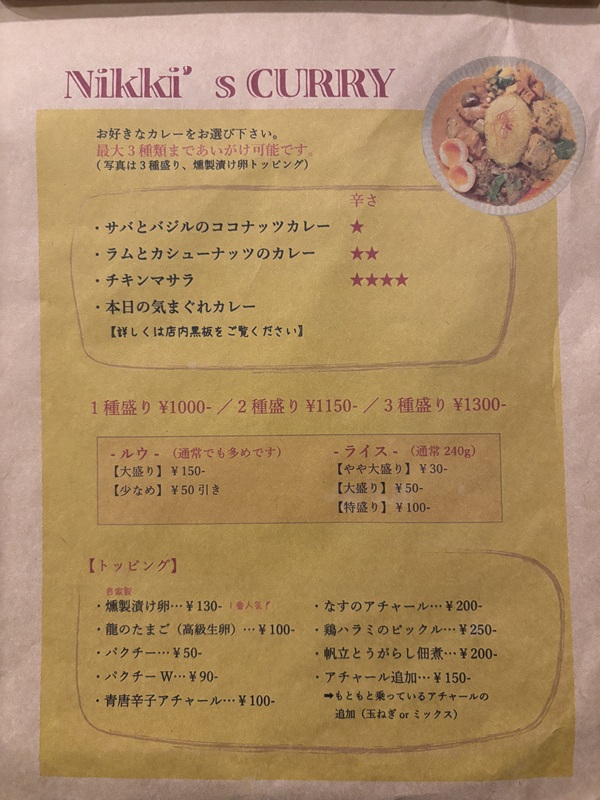 Nikki's CURRY
お好きなカレーをお選び下さい。
最大3種類まであいがけ可能です。
(写真は3種盛り、燻製漬け卵トッピング)
辛さ
・サバとバジルのココナッツカレー ★
・ラムとカシューナッツのカレー ★★
・チキンマサラ ★★★★
・本日の気まぐれカレー
【詳しくは店内黒板をご覧ください】
1種盛り ¥1000- ／ 2種盛り ¥1150- ／ 3種盛り ¥1300-
- ルウ - （通常でも多めです）
【大盛り】¥150-
【少なめ】¥50引き
- ライス - （通常 240g）
【やや大盛り】¥30-
【大盛り】¥50-
【特盛り】¥100-
【トッピング】
自家製
・燻製漬け卵…¥130- 1番人気！
・龍のたまご（高級生卵）…¥100-
・パクチー…¥50-
・パクチーW…¥90-
・青唐辛子アチャール…¥100-
・なすのアチャール…¥200-
・鶏ハラミのピックル…¥250-
・帆立とうがらし佃煮…¥200-
・アチャール追加…¥150-
➡もともと乗っているアチャールの
追加（玉ねぎ or ミックス）